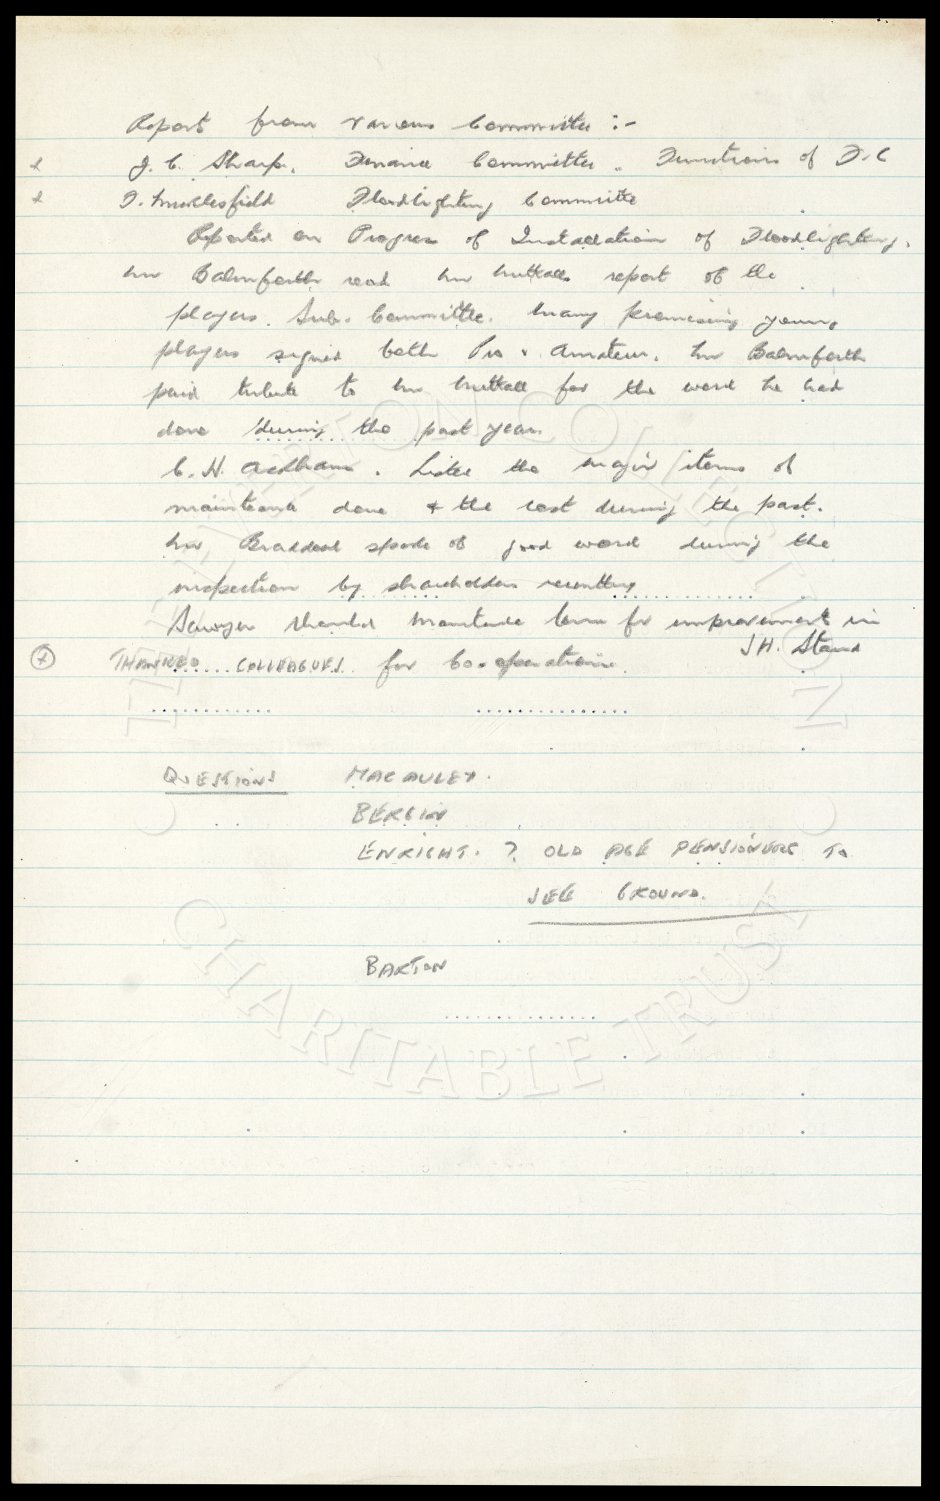 Report from various Committee :-
J. C. Sharp. Finance Committee. Functions of F.C
F. Micklesfield Floodlighting Committee
Reported on Progress of Installation of Floodlighting.
Mr Balmforth read Mr Nuttalls report of the
players Sub. Committee. Many promising young
players signed both Pro & Amateur. Mr Balmforth
paid tribute to Mr Nuttall for the work he had
done during the past year.
C. H. Listed the major items of
maintenance done & the cost during the past.
Mr Braddock spoke of good work during the
inspection by shareholders recently
Sawyer thanked for improvement in
J H. Stand
THANKED COLLEAGUES for Co-operation
QUESTIONS MACAULEY.
BERGIN
ENRIGHT. ? OLD AGE PENSIONERS TO
SEE GROUND.
BARTON
THE EVERTON COLLECTION
CHARITABLE TRUST